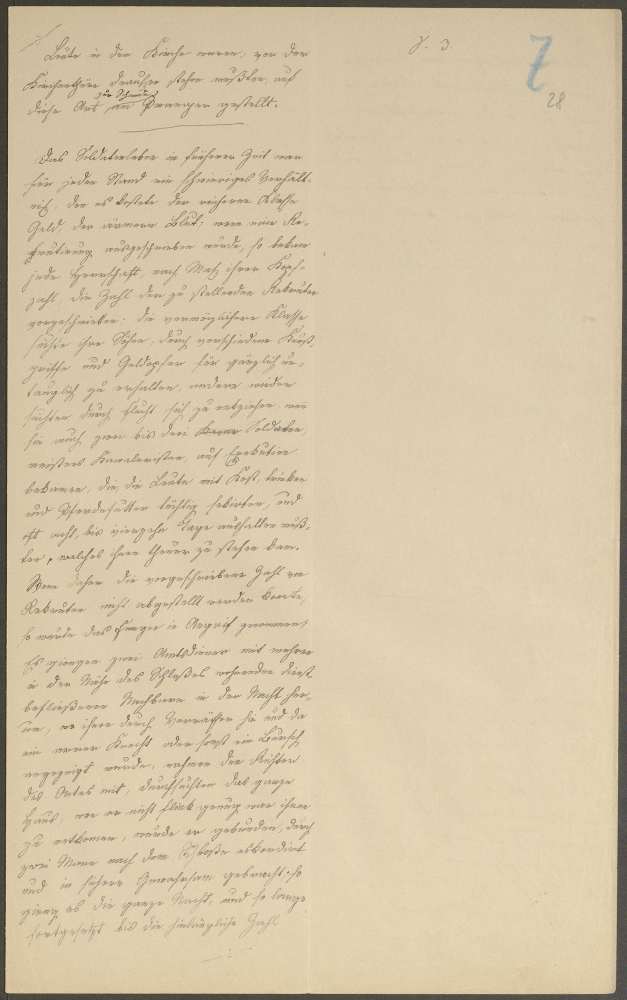 γ. 3
7
28
Leute in der Kirche waren, vor der
Kirchenthüre draußen stehen mußten, auf
zur Schande
diese Art an Pranger gestellt.
Das Soldatenleben in früherer Zeit war
für jeden Stand ein schwieriges Verhält-
niß, den es kostete der reicheren Klasse
Geld, der ärmern Blut; wenn eine Re-
krutirung ausgeschrieben wurde, so bekam
jede Herrschaft, nach Maß ihrer Kopf-
zahl, die Zahl der zu stellenden Rekruten
vorgeschrieben; die vermöglichere Klasse
suchte ihre Söhne, durch verschiedene Kunst-
griffe und Geldopfer für gänzlich un-
tauglich zu erhalten, andere wieder
suchten durch Flucht sich zu entziehen, wen
sie auch zwei bis drei Soldaten,
meistens Kavaleristen, auf Exekution
bekamen, die, die Leute mit Kost, trinken
und Pferdefutter tüchtig sekirten, und
oft acht, bis vierzehn Tage aushalten muß-
ten, welches ihnen theuer zu stehen kam.
Wenn daher die vorgeschriebene Zahl von
Rekruten nicht abgestellt werden konnte,
so wurde das Fangen in Angriff genommen,
Es giengen zwei Amtsdiener mit mehren
in der Nähe des Schloßes wohnenden dienst-
beflißenen Nachbarn in der Nacht her-
um, wo ihnen durch Verräther hie und da
ein armer Knecht oder sonst ein Bursch
angezeigt wurde, nahmen den Richter
des Ortes mit, durchsuchten das ganze
Haus, wen er nicht flink genug war ihnen
zu entkomen, wurde er gebunden, durch
zwei Mann nach dem Schloße eskordirt
und in sichern Gewahrsam gebracht; so
gieng es die ganze Nacht, und so lange
fortgesetzt bis die hinlängliche Zahl